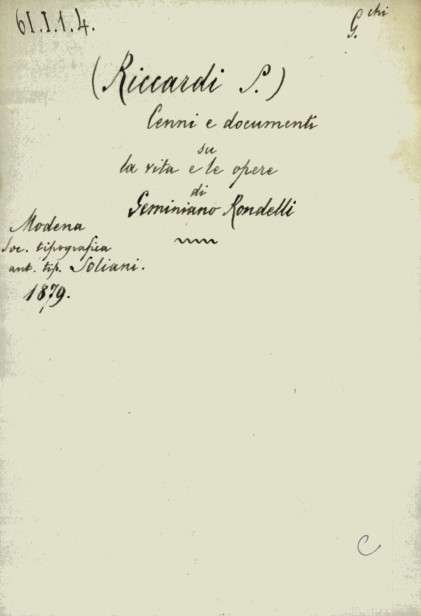 61.I.1.4.
G. chi
(Riccardi P.)
Cenni e documenti
su
la vita e le opere
di
Geminiano Rondelli
Modena
Soc. tipografica
ant. tip. Soliani.
1879.
C